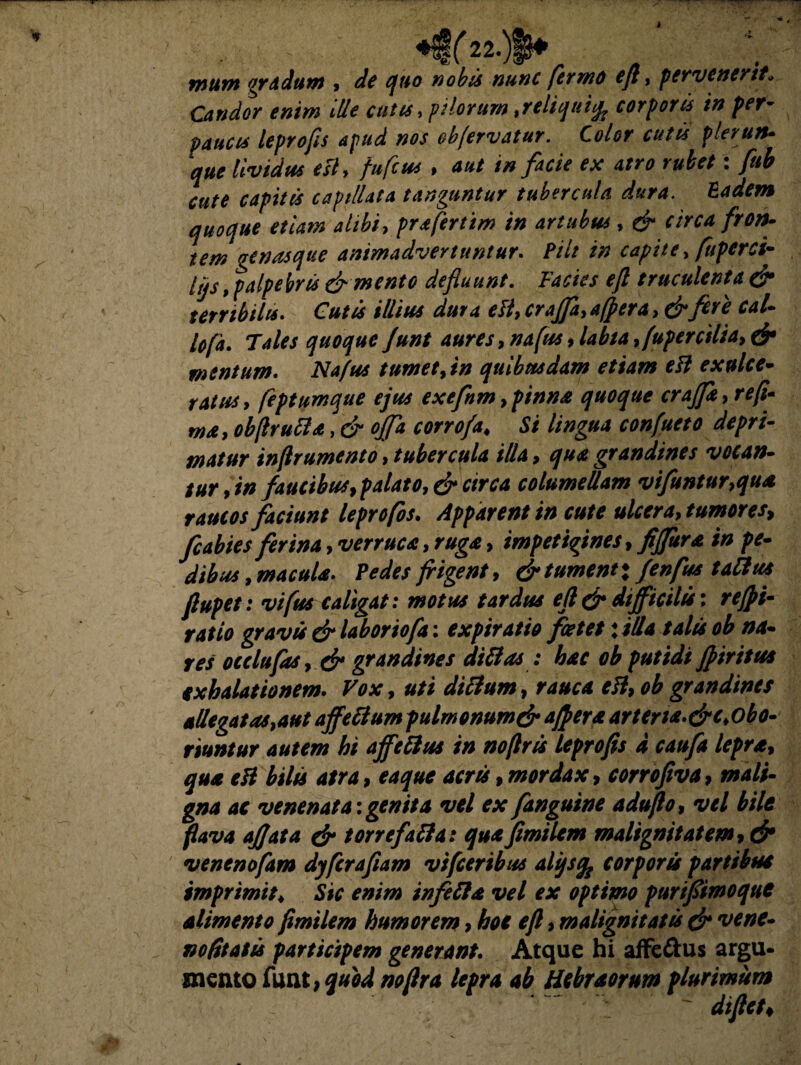 (22.)
mum gradum , de quo nobis nunc sermo est, pervenerit.
Candor enim ille cutis, pilorum, reliquiq; corporis in per-
paucis leprosis apud nos observatur. Color cutis plerun-
que lividus est, fuscus , aut in facie ex atro rubet : sub
cute capitis capillata tanguntur tubercula dura. Eadem
quoque etiam alibi, præsertim in artubus, & circa fron-
tem genasque animadvertuntur. Pili in capite, superci-
lijs, palpebris & mento defluunt. Facies est truculenta &
terribilis. Cutis illius dura est, crassa, aspera, & fere cal-
losa. Tales quoque sunt aures, nasus, labia, supercilia, &
mentum. Nasus tumet, in quibusdam etiam est exulce-
ratus, septumque ejus exesum, pinnæ quoque crassæ, resi-
mæ, obstructæ, & ossa corrosa. Si lingua consueto depri-
matur instrumento, tubercula illa, quæ grandines vocan-
tur, in faucibus, palato, & circa columellam visuntur, quæ
raucos faciunt leprosos. Apparent in cute ulcera, tumores,
scabies ferina, verrucæ, rugæ, impetigines, fissuræ in pe-
dibus, maculæ. Pedes frigent, & tument; sensus tactus
stupet: visus caligat: motus tardus est & difficilis: respi-
ratio gravis & laboriosa: expiratio fœtet: illa talis ob na-
res occlusas, & grandines dictas : hæc ob putidi spiritus
exhalationem. Vox, uti dictum, rauca est, ob grandines
allegatas, aut affectum pulmonum & asperæ arteriæ. &c. Obo-
riuntur autem hi affectus in nostris leprosis à causa lepræ,
quæ est bilis atra, eaque acris, mordax, corrosiva, mali-
gna ac venenata: genita vel ex sanguine adusto, vel bile
flava assata & torrefacta: quæ similem malignitatem, &
venenosam dyscrasiam visceribus alijsq; corporis partibus
imprimit. Sic enim infecta vel ex optimo purissimoque
alimento similem humorem, hoc est, malignitatis & vene-
nositatis participem generant. Atque hi affectus argu-
mento sunt, quòd nostra lepra ab Hebræorum plurimùm
distet.